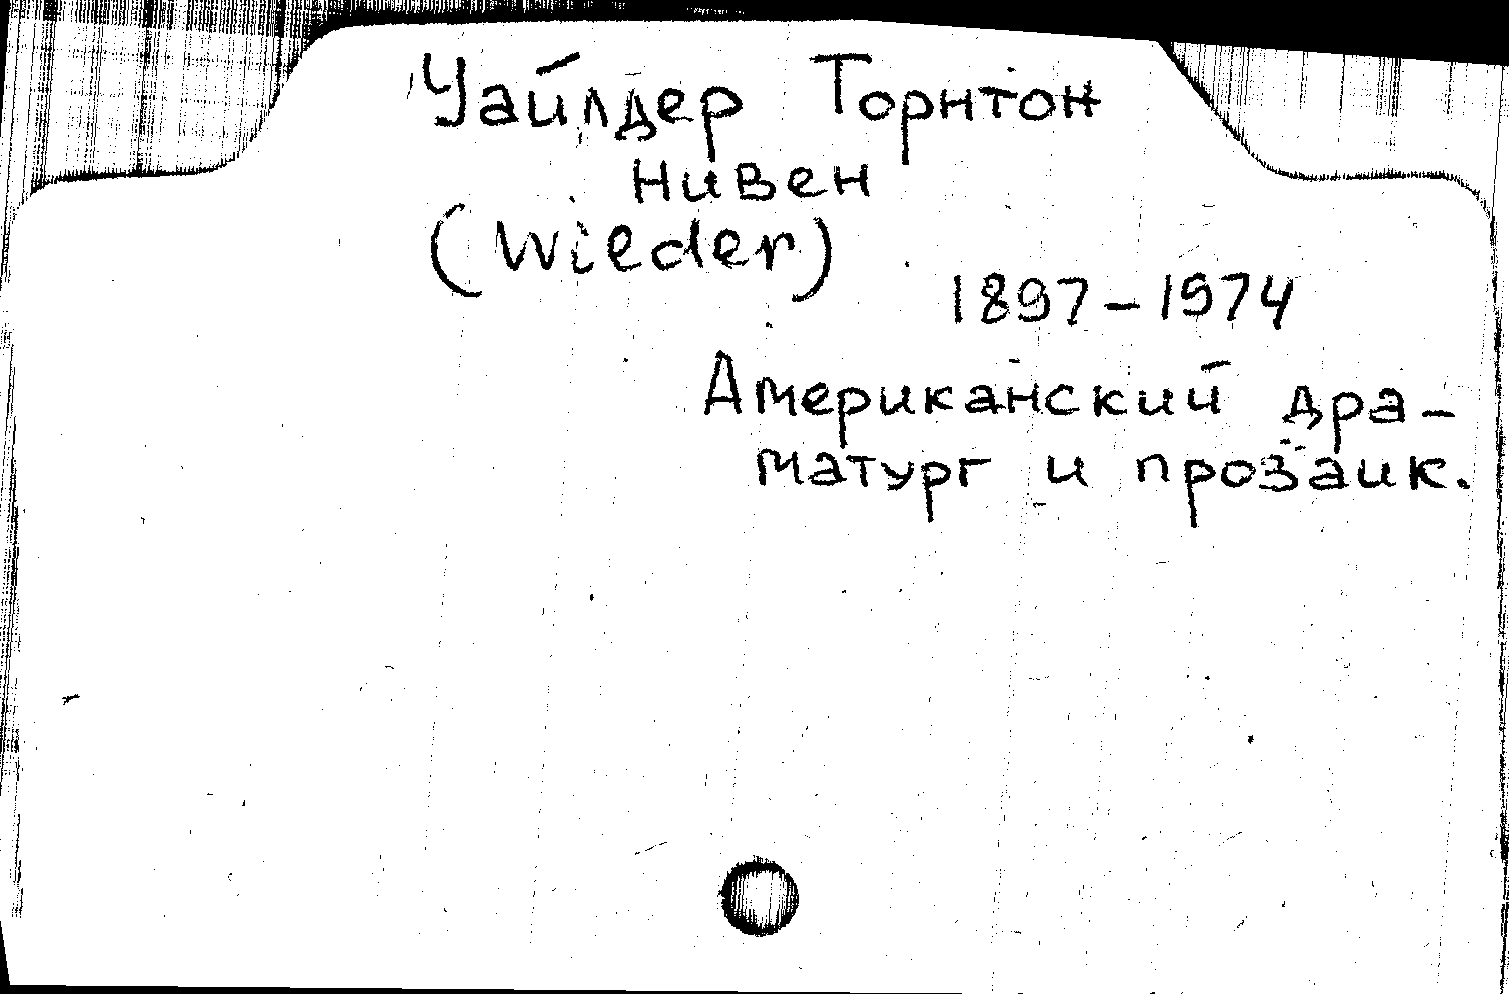 Уайлдер Торнтон
Нивен
(Wieder)
1897-1974
Американский дра-
матург и прозаик.